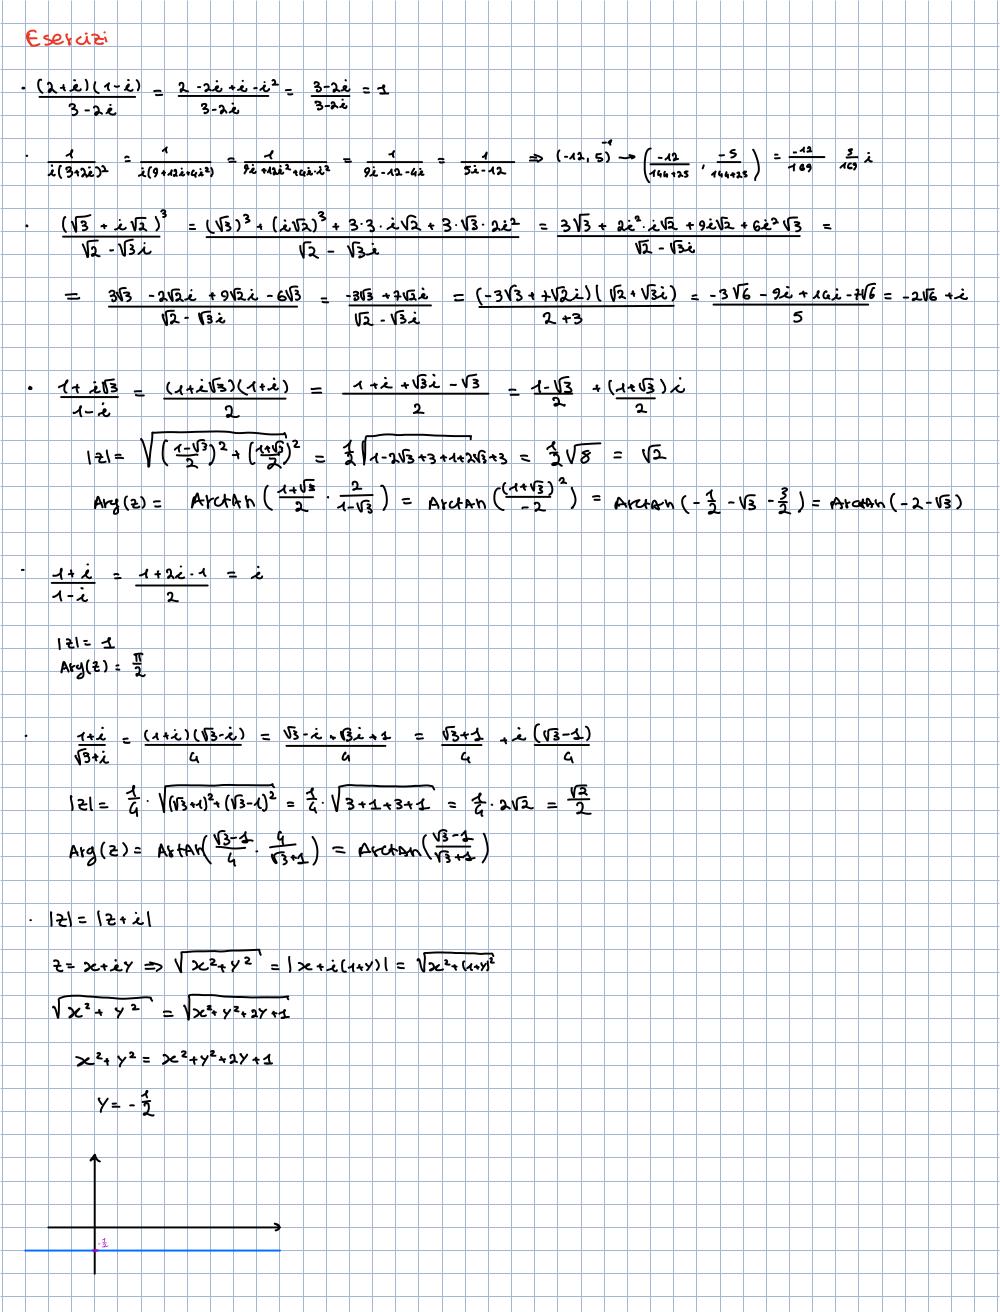 Esercizi
· (2+i)(1-i)/(3-2i) = (2-2i+i-i²)/(3-2i) = (3-2i)/(3-2i) = 1
· 1/(i(3+2i)²) = 1/(i(9+12i+4i²)) = 1/(9i+12i²+4i·i²) = 1/(9i-12-4i) = 1/(5i-12) ⇒ (-12,5)⁻¹ → (-12/(144+25), -5/(144+25)) = -12/169 5/169 i
· (√3 + i√2)³/(√2 - √3i) = ((√3)³ + (i√2)³ + 3·3·i√2 + 3·√3·2i²)/(√2 - √3i) = (3√3 + 2i²·i√2 + 9i√2 + 6i²√3)/(√2 - √3i) =
= (3√3 - 2√2i + 9√2i - 6√3)/(√2 - √3i) = (-3√3 + 7√2i)/(√2 - √3i) = (-3√3 + 7√2i)(√2 + √3i)/(2+3) = (-3√6 - 9i + 14i - 7√6)/5 = -2√6 + i
· (1+i√3)/(1-i) = (1+i√3)(1+i)/2 = (1+i+√3i-√3)/2 = (1-√3)/2 + ((1+√3)/2)i
|z| = √(((1-√3)/2)² + ((1+√3)/2)²) = 1/2 √(1-2√3+3+1+2√3+3) = 1/2 √8 = √2
Arg(z) = Arctan((1+√3)/2 · 2/(1-√3)) = Arctan((1+√3)²/-2) = Arctan(-1/2 - √3 - 3/2) = Arctan(-2-√3)
· (1+i)/(1-i) = (1+2i-1)/2 = i
|z| = 1
Arg(z) = π/2
· (1+i)/(√3+i) = (1+i)(√3-i)/4 = (√3-i+√3i+1)/4 = (√3+1)/4 + i(√3-1)/4
|z| = 1/4 · √((√3+1)²+(√3-1)²) = 1/4 · √(3+1+3+1) = 1/4 · 2√2 = √2/2
Arg(z) = Artan((√3-1)/4 · 4/(√3+1)) = Arctan((√3-1)/(√3+1))
· |z| = |z+i|
z = x+iy ⇒ √(x²+y²) = |x+i(1+y)| = √(x²+(1+y)²)
√(x²+y²) = √(x²+y²+2y+1)
x²+y² = x²+y²+2y+1
y = -1/2